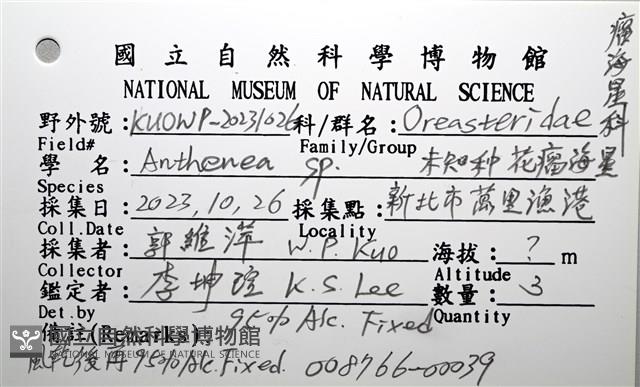 國立自然科學博物館
NATIONAL MUSEUM OF NATURAL SCIENCE
瘤海星科
野外號:KUOWP-20231026 科/群名:Oreasteridae
Field# Family/Group
學名:Anthenea sp. 未知种花瘤海星
Species
採集日:2023,10,26 採集點:新北市萬里漁港
Coll.Date Locality
採集者:郭維萍 W.P. Kuo 海拔:? m
Collector Altitude
鑑定者:李坤瑄 K.S. Lee 數量:3
Det.by Quantity
95% Alc. Fixed
備註(Remarks)
國立自然科學博物館
NATIONAL MUSEUM OF NATURAL SCIENCE
風乾後再95% Alc. Fixed. 008766-00039